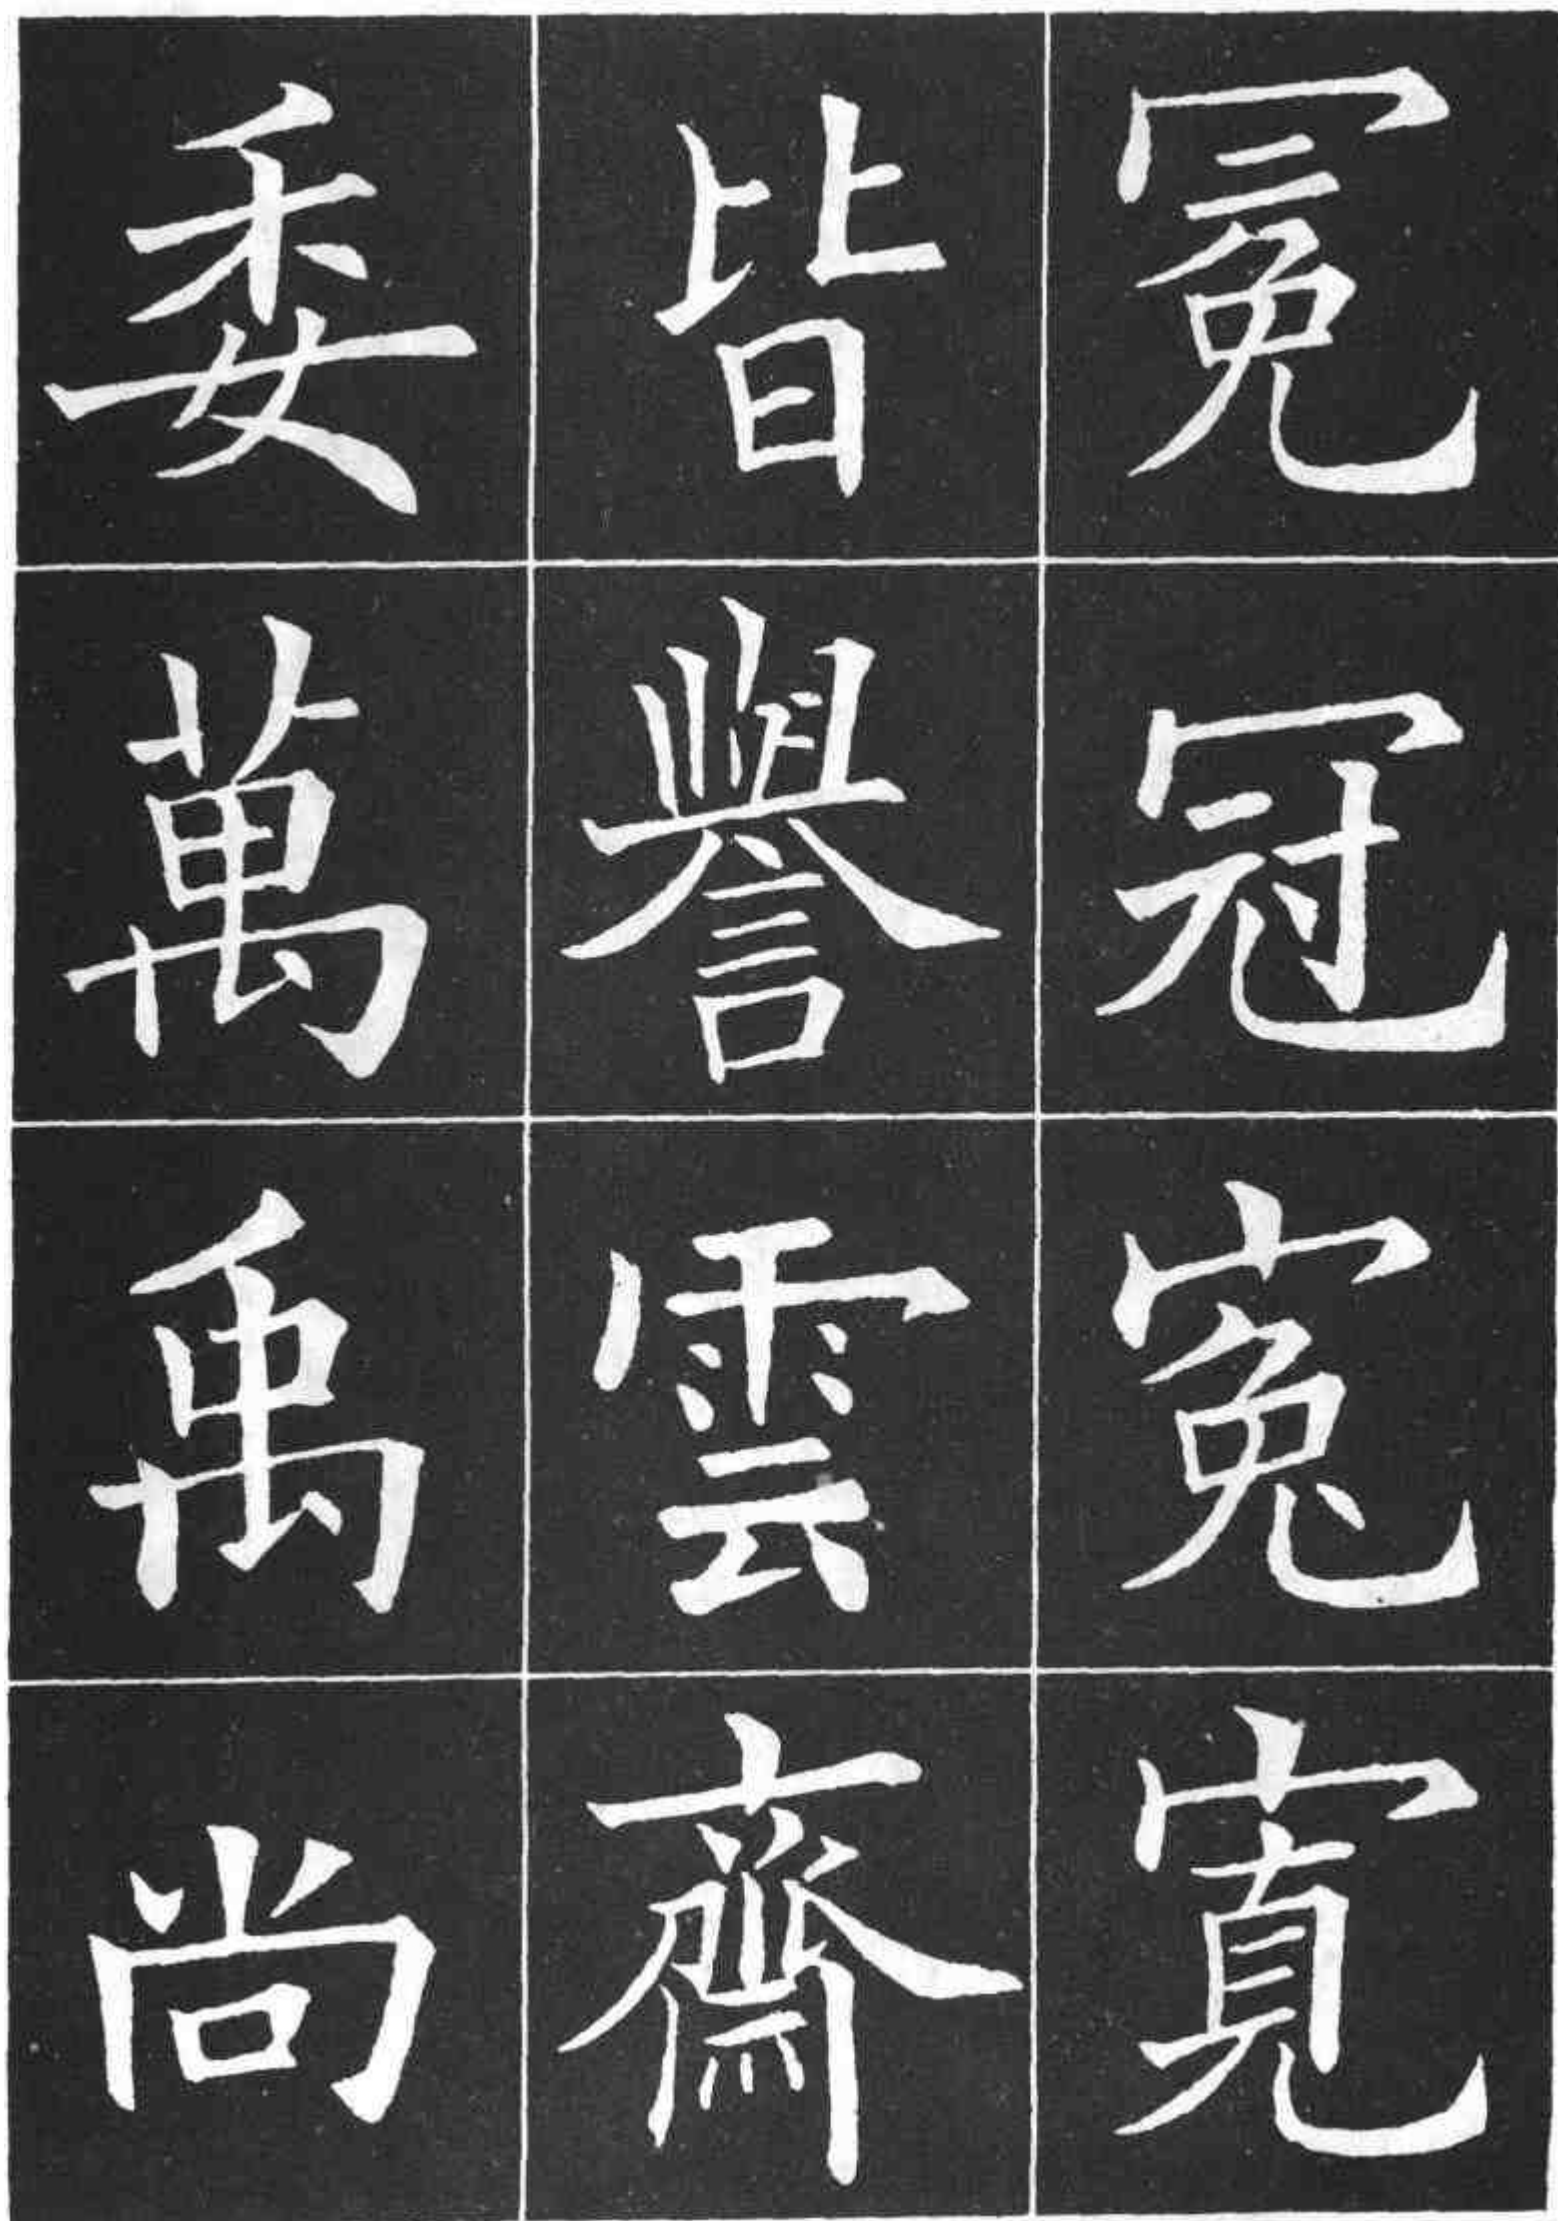 冕冠寃寬
皆譽雲齋
委萬禹尚